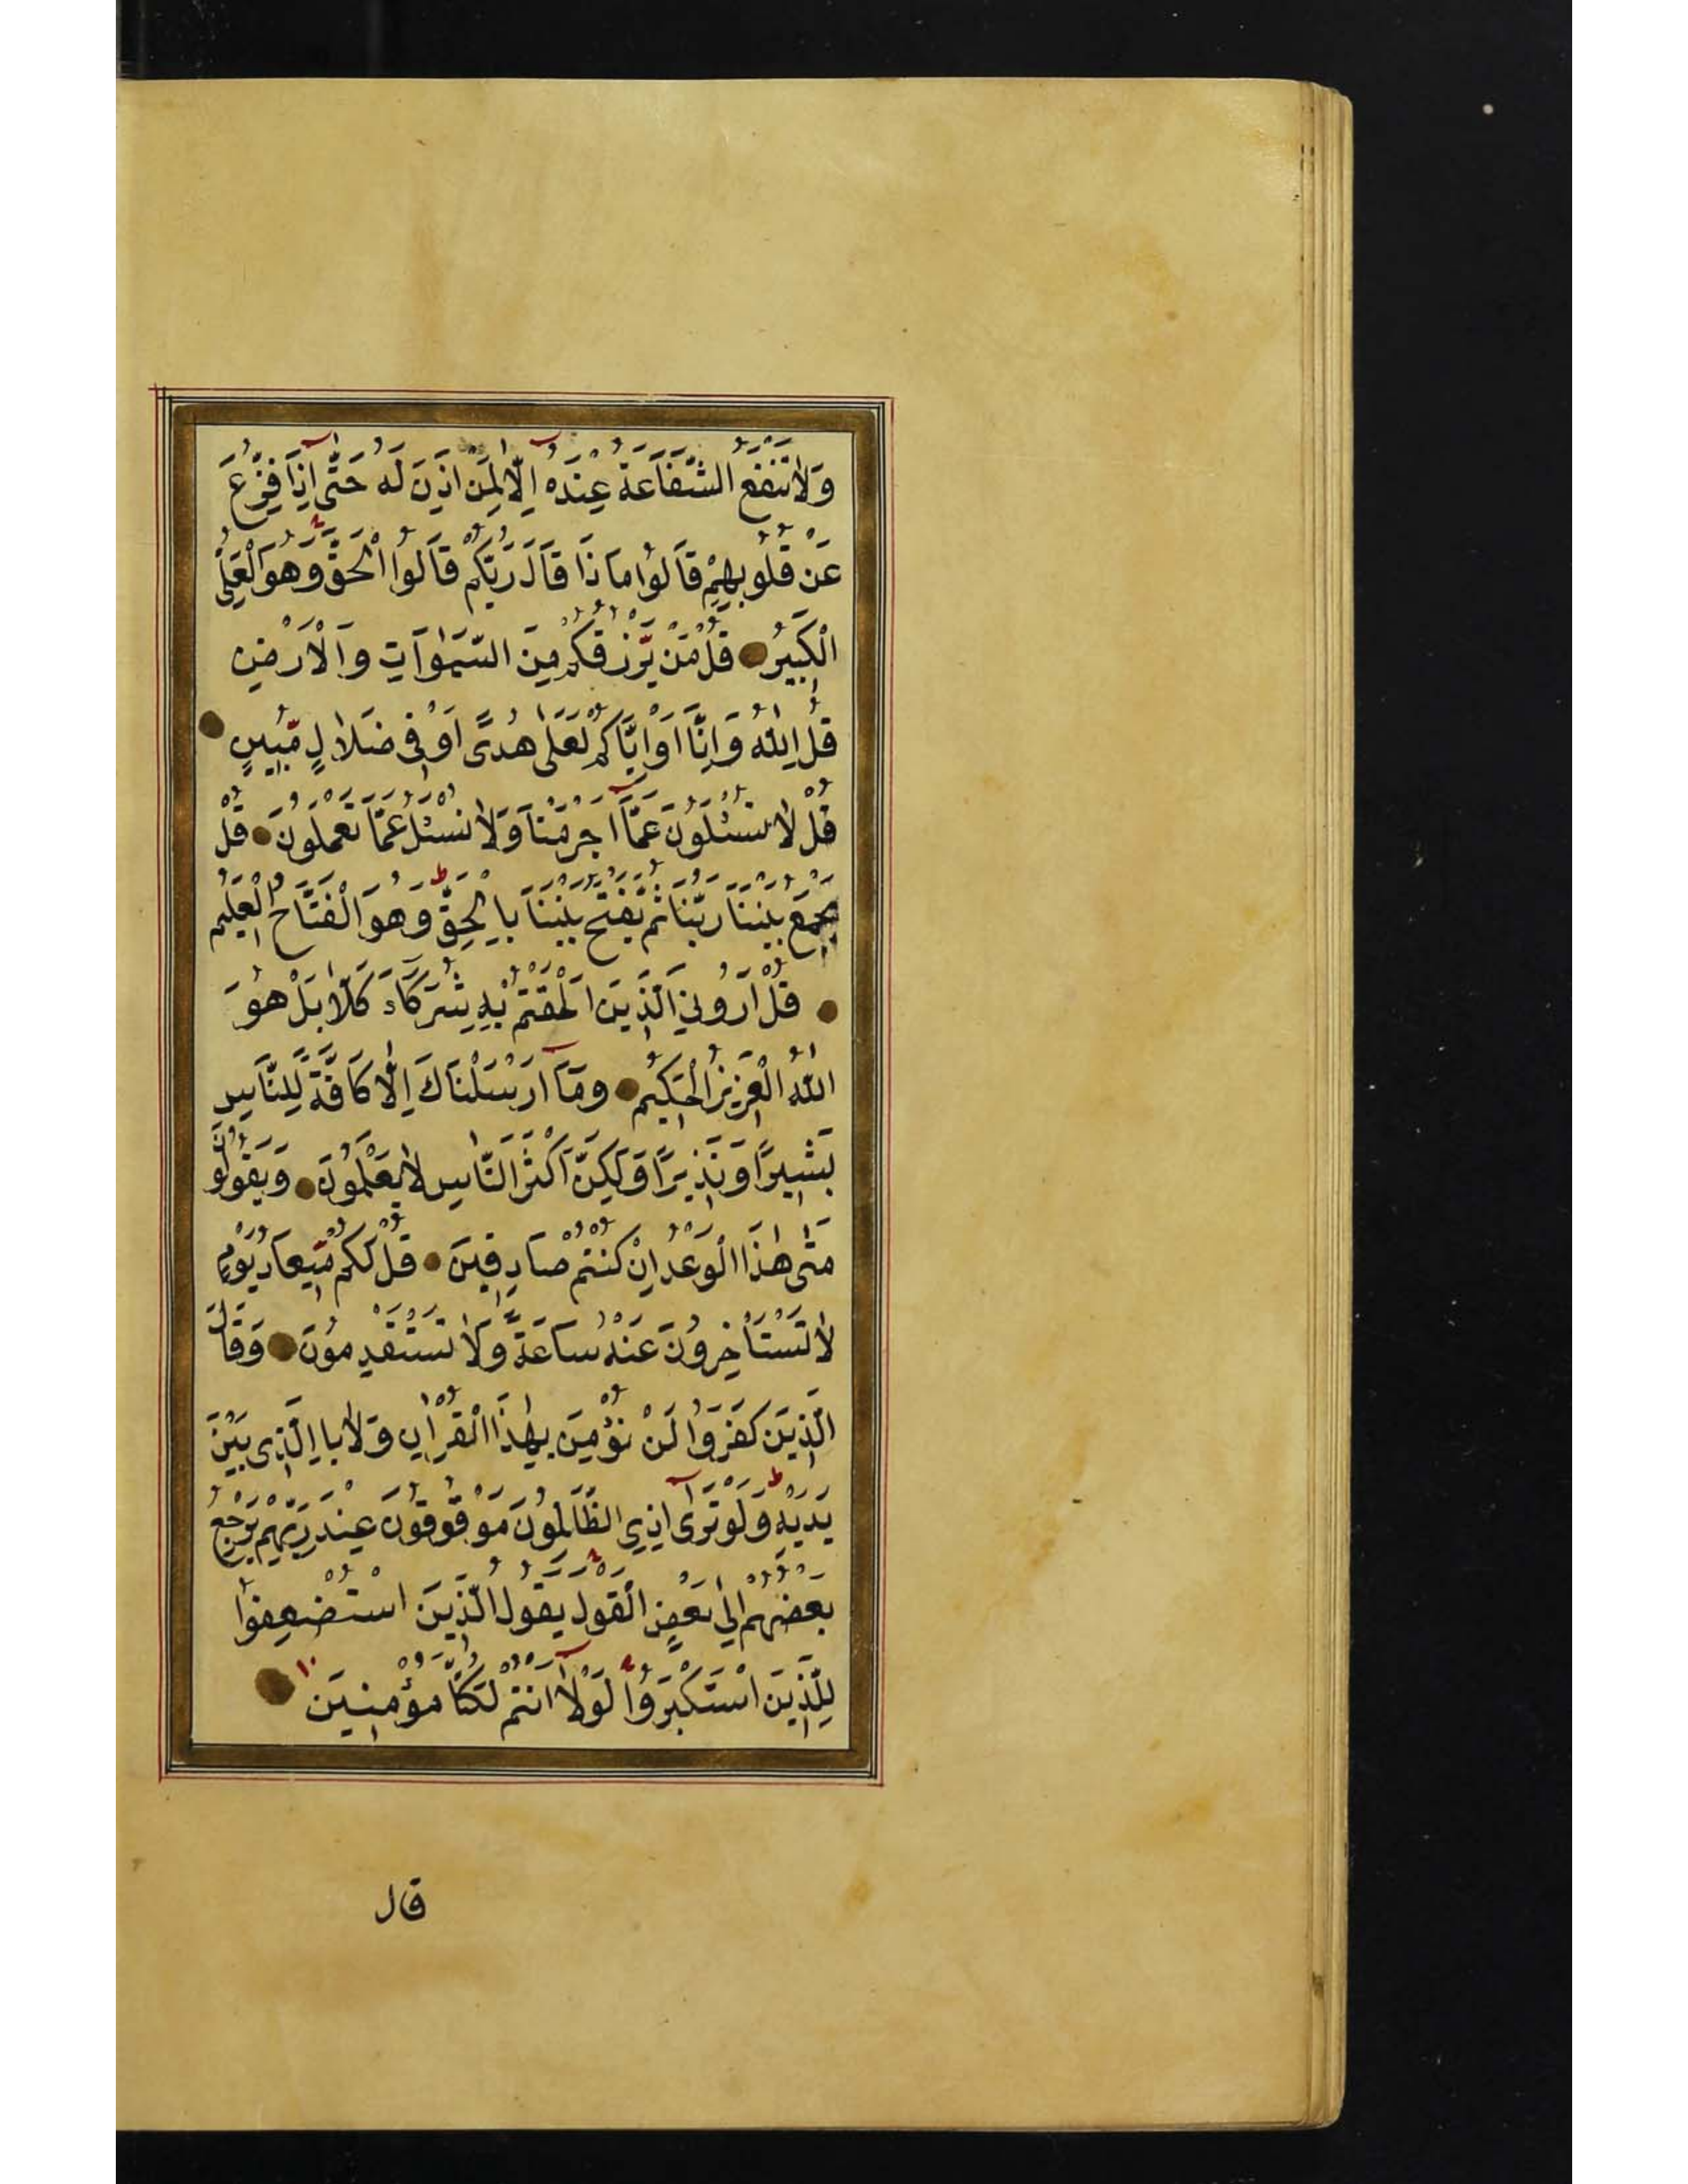 وَلَا تَنْفَعُ الشَّفَاعَةُ عِنْدَهُ اِلَّا لِمَنْ اَذِنَ لَهُ حَتّٰى اِذَا فُزِّعَ
عَنْ قُلُوبِهِمْ قَالُوا مَا ذَا قَالَ رَبُّكُمْ قَالُوا الْحَقَّ وَهُوَ الْعَلِىُّ
الْكَبِيرُ قُلْ مَنْ يَرْزُقُكُمْ مِنَ السَّمٰوَاتِ وَالْاَرْضِ
قُلِ اللّٰهُ وَاِنَّا اَوْ اِيَّاكُمْ لَعَلٰى هُدًى اَوْ فِى ضَلَالٍ مُّبِينٍ
قُلْ لَا تُسْئَلُونَ عَمَّا اَجْرَمْنَا وَلَا نُسْئَلُ عَمَّا تَعْمَلُونَ قُلْ
يَجْمَعُ بَيْنَنَا رَبُّنَا ثُمَّ يَفْتَحُ بَيْنَنَا بِالْحَقِّ وَهُوَ الْفَتَّاحُ الْعَلِيمُ
قُلْ اَرُونِيَ الَّذِينَ اَلْحَقْتُمْ بِهِ شُرَكَاءَ كَلَّا بَلْ هُوَ
اللّٰهُ الْعَزِيزُ الْحَكِيمُ وَمَا اَرْسَلْنَاكَ اِلَّا كَافَّةً لِلنَّاسِ
بَشِيرًا وَنَذِيرًا وَلٰكِنَّ اَكْثَرَ النَّاسِ لَا يَعْلَمُونَ وَيَقُولُونَ
مَتٰى هٰذَا الْوَعْدُ اِنْ كُنْتُمْ صَادِقِينَ قُلْ لَكُمْ مِّيعَادُ يَوْمٍ
لَا تَسْتَاْخِرُونَ عَنْهُ سَاعَةً وَلَا تَسْتَقْدِمُونَ وَقَالَ
الَّذِينَ كَفَرُوا لَنْ نُؤْمِنَ بِهٰذَا الْقُرْاٰنِ وَلَا بِالَّذِى بَيْنَ
يَدَيْهِ وَلَوْ تَرٰى اِذِ الظَّالِمُونَ مَوْقُوفُونَ عِنْدَ رَبِّهِمْ يَرْجِعُ
بَعْضُهُمْ اِلٰى بَعْضٍ الْقَوْلَ يَقُولُ الَّذِينَ اسْتُضْعِفُوا
لِلَّذِينَ اسْتَكْبَرُوا لَوْلَا اَنْتُمْ لَكُنَّا مُؤْمِنِينَ ١٠
قال